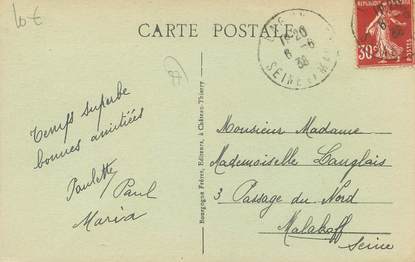 10 €
CARTE POSTALE
18-20
6-6
38
SEINE ET MARNE
30c
POSTES
Temps superbe
bonnes amitiées
Paulette
Paul
Maria
Bourgogne Frères, Editeurs, à Château-Thierry
Monsieur Madame
Mademoiselle Langlais
3 Passage du Nord
Malakoff
Seine